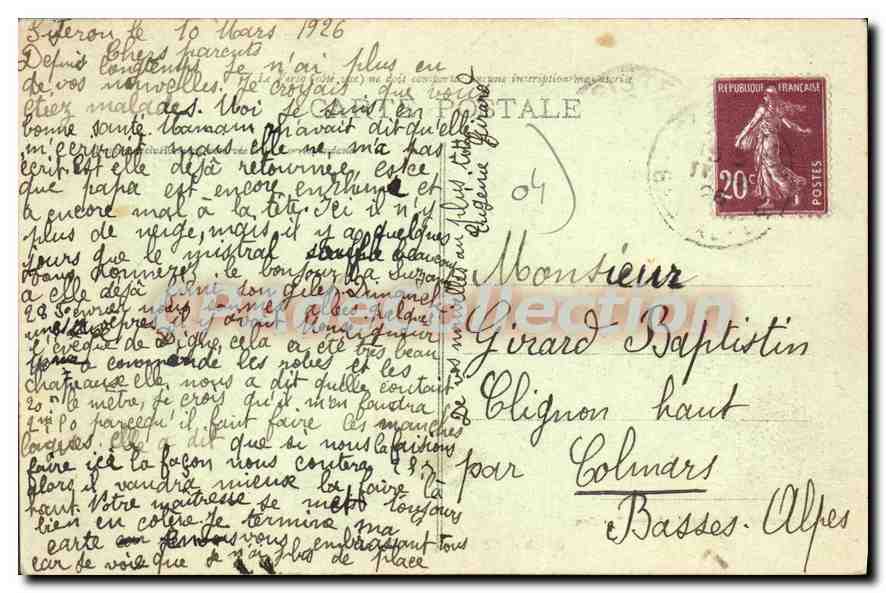 Sisteron le 10 Mars 1926
Chers parents
Depuis longtemps je n'ai plus eu
de vos nouvelles. Je croyais que vous
étiez malades. Moi je suis en
bonne santé. Maman m'avait dit qu'elle
m'écrirait mais elle ne m'a pas
écrit est elle déjà retournée, est ce
que papa est encore enrhumé et
a encore mal à la tête. Ici il n'y
plus de neige, mais il y a quelques
jours que le mistral souffle beaucoup
vous donnerez le bonjour à Suzanne
a elle déjà fini son gilet Dimanche
28 Février nous sommes
Monseigneur
l'évêque de Digne, cela a été très beau
commande les robes et les
chateause elle nous a dit qu'elle coutait
20 le mètre, je crois qu'il m'en faudra
2m 80 parcequ'il faut faire les manches
larges. Elle a dit que si nous la faisions
faire ici la façon nous coutera
alors il vaudra mieux la faire là
haut. Votre maîtresse se met toujours
bien en colère. Je termine ma
carte en vous embrassant tous
car je vois que je n'ai plus de place
De vos nouvelles au plus tôt
Eugénie Girard
CARTE POSTALE
04
REPUBLIQUE FRANÇAISE
20c
POSTES
Monsieur
Girard Baptistin
Clignon haut
par Colmars
Basses-Alpes